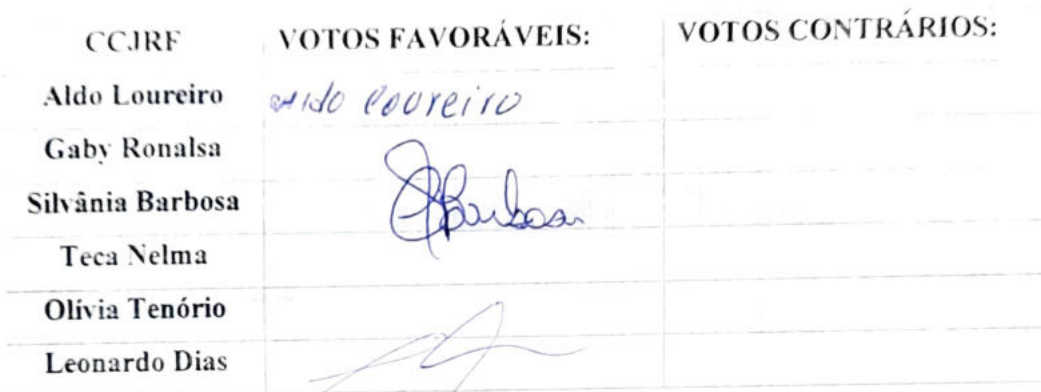 CCJRF VOTOS FAVORÁVEIS: VOTOS CONTRÁRIOS:
Aldo Loureiro Aldo Loureiro
Gaby Ronalsa
Silvânia Barbosa SBarbosa
Teca Nelma
Olívia Tenório
Leonardo Dias